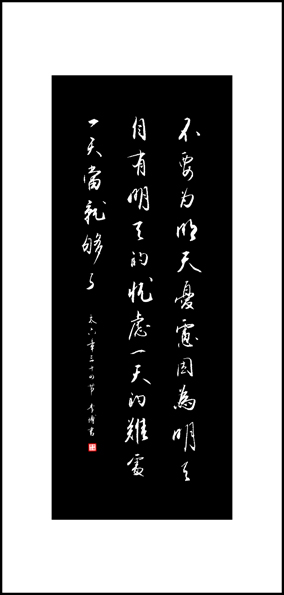 不要为明天憂慮因為明天
自有明天的忧慮一天的難處
一天當就够了
太六章三十四节